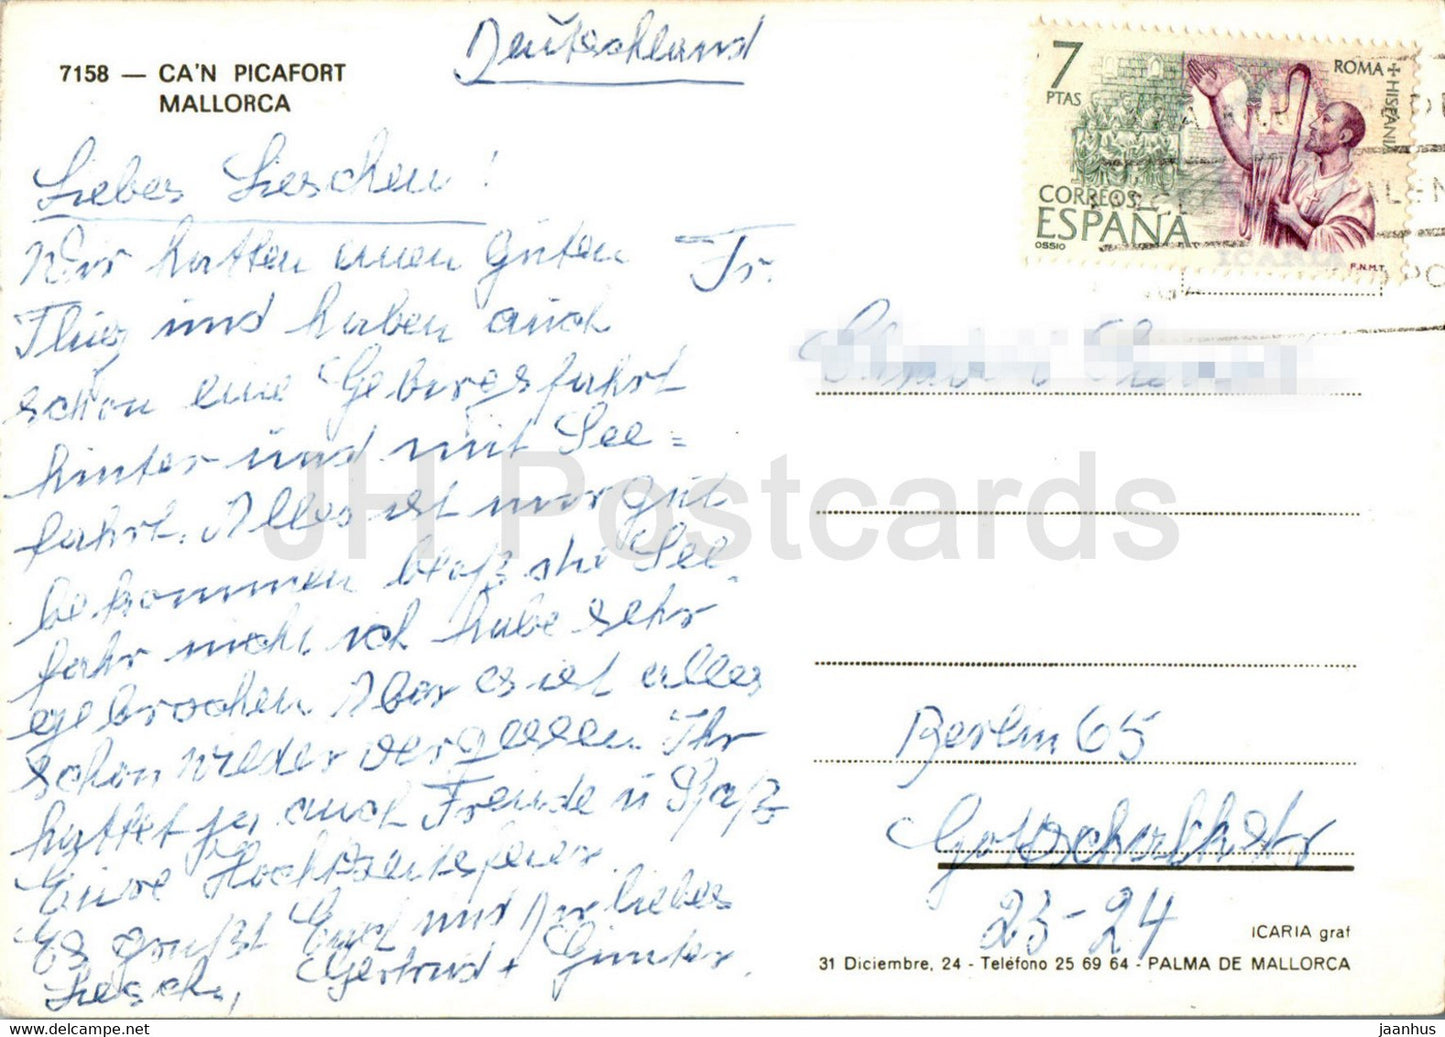 7158 — CA'N PICAFORT
MALLORCA
Deutschland
Liebes Lieschen!
Wir hatten einen guten
Flug und haben auch
schon eine Gebirgsfahrt
hinter und mit See=
fahrt. Alles ist mir gut
bekommen bloß die See
fahr nicht ich habe sehr
gebrochen Aber es ist alles
schon wieder vergessen. Ihr
hattet ja auch Freude u Spaß
Eure Hochzeitsfeier
Es grüßt Euch und Dir liebes
Liesch., Gertrud + Günter.
7
PTAS
ROMA + HISPANIA
CORREOS
ESPAÑA
OSSIO
F.N.M.T.
ICARIA
Fr.
Berlin 65
Gottschalkstr
23-24
ICARIA graf
31 Diciembre, 24 - Teléfono 25 69 64 - PALMA DE MALLORCA
JH Postcards
HIP-STAMP.COM
jaanhus